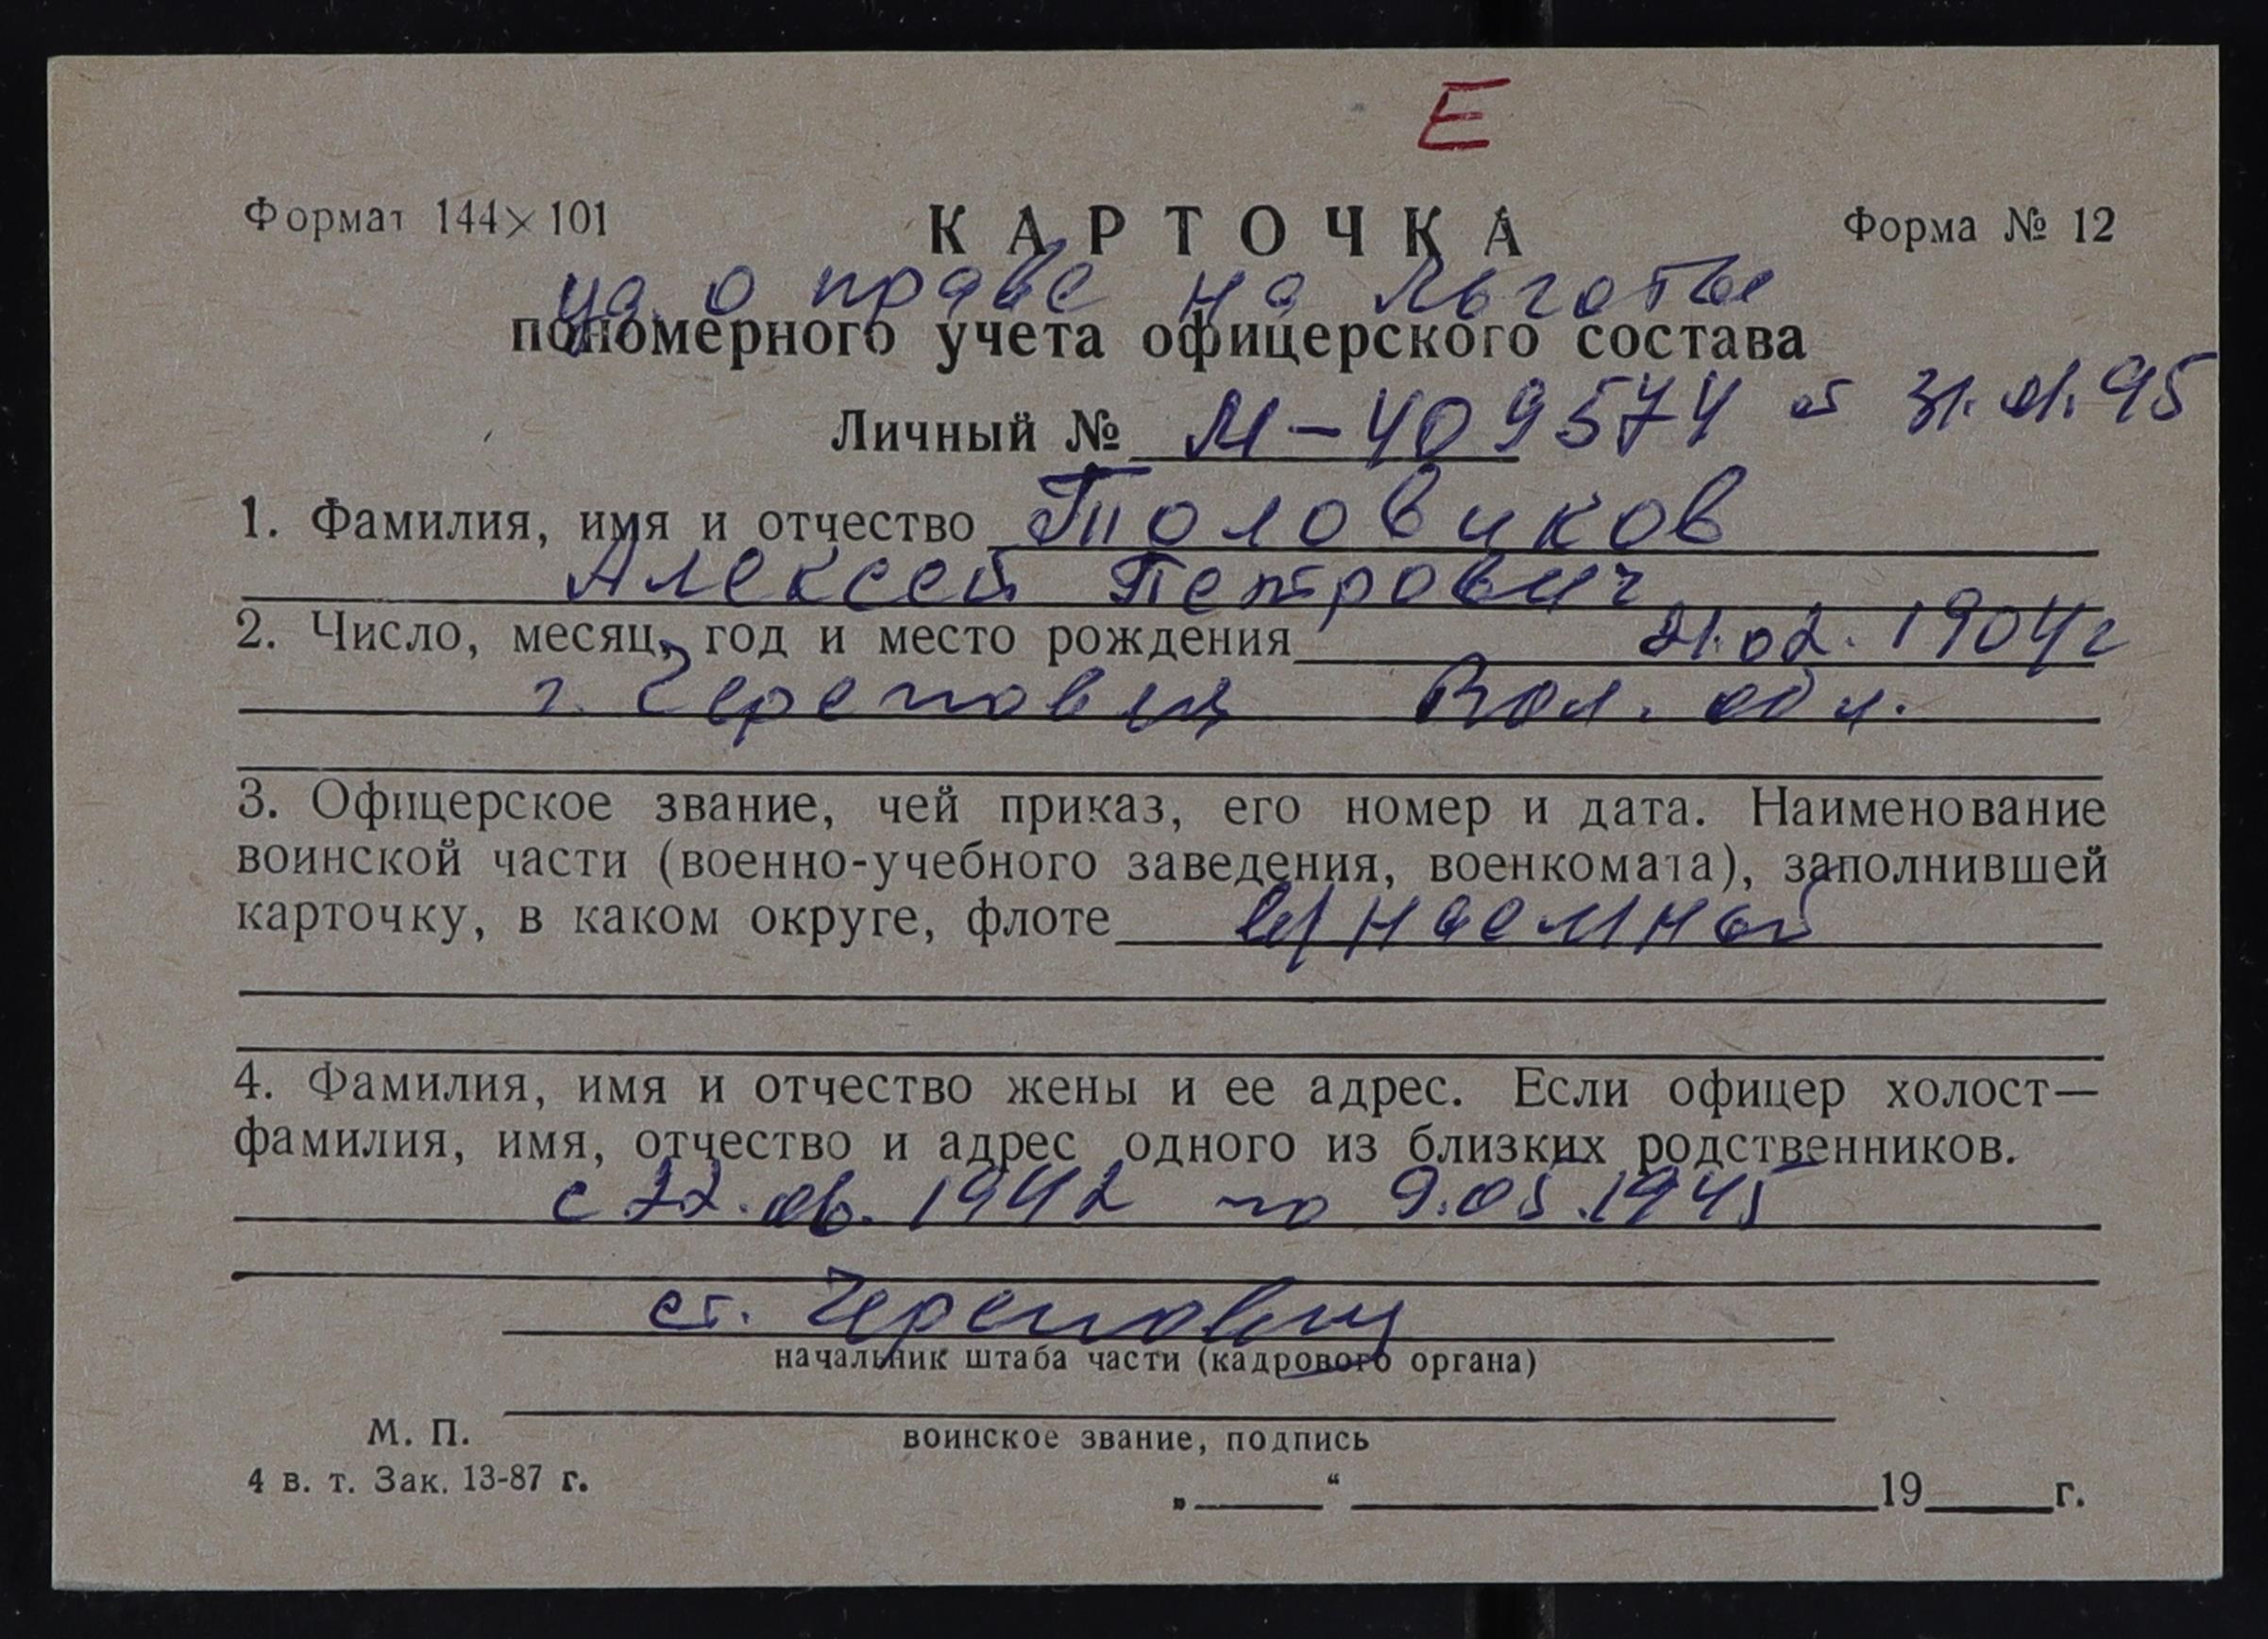 Е
Формат 144×101
КАРТОЧКА
Форма № 12
уд. о праве на льготы
пономерного учета офицерского состава
Личный № М-409574 от 31.01.95
1. Фамилия, имя и отчество Половиков
Алексей Петрович
2. Число, месяц, год и место рождения 21.02.1904г
г. Череповец Вол. обл.
3. Офицерское звание, чей приказ, его номер и дата. Наименование
воинской части (военно-учебного заведения, военкомата), заполнившей
карточку, в каком округе, флоте в/наемной
4. Фамилия, имя и отчество жены и ее адрес. Если офицер холост—
фамилия, имя, отчество и адрес одного из близких родственников.
с 22.06.1942 по 9.05.1945
ст. Череповец
начальник штаба части (кадрового органа)
М. П.
воинское звание, подпись
4 в. т. Зак. 13-87 г.
„ “ 19 г.